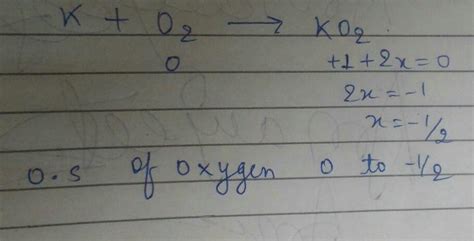 K + O₂ → KO₂
0 +1+2x=0
2x = -1
x = -1/2
O.S of Oxygen 0 to -1/2